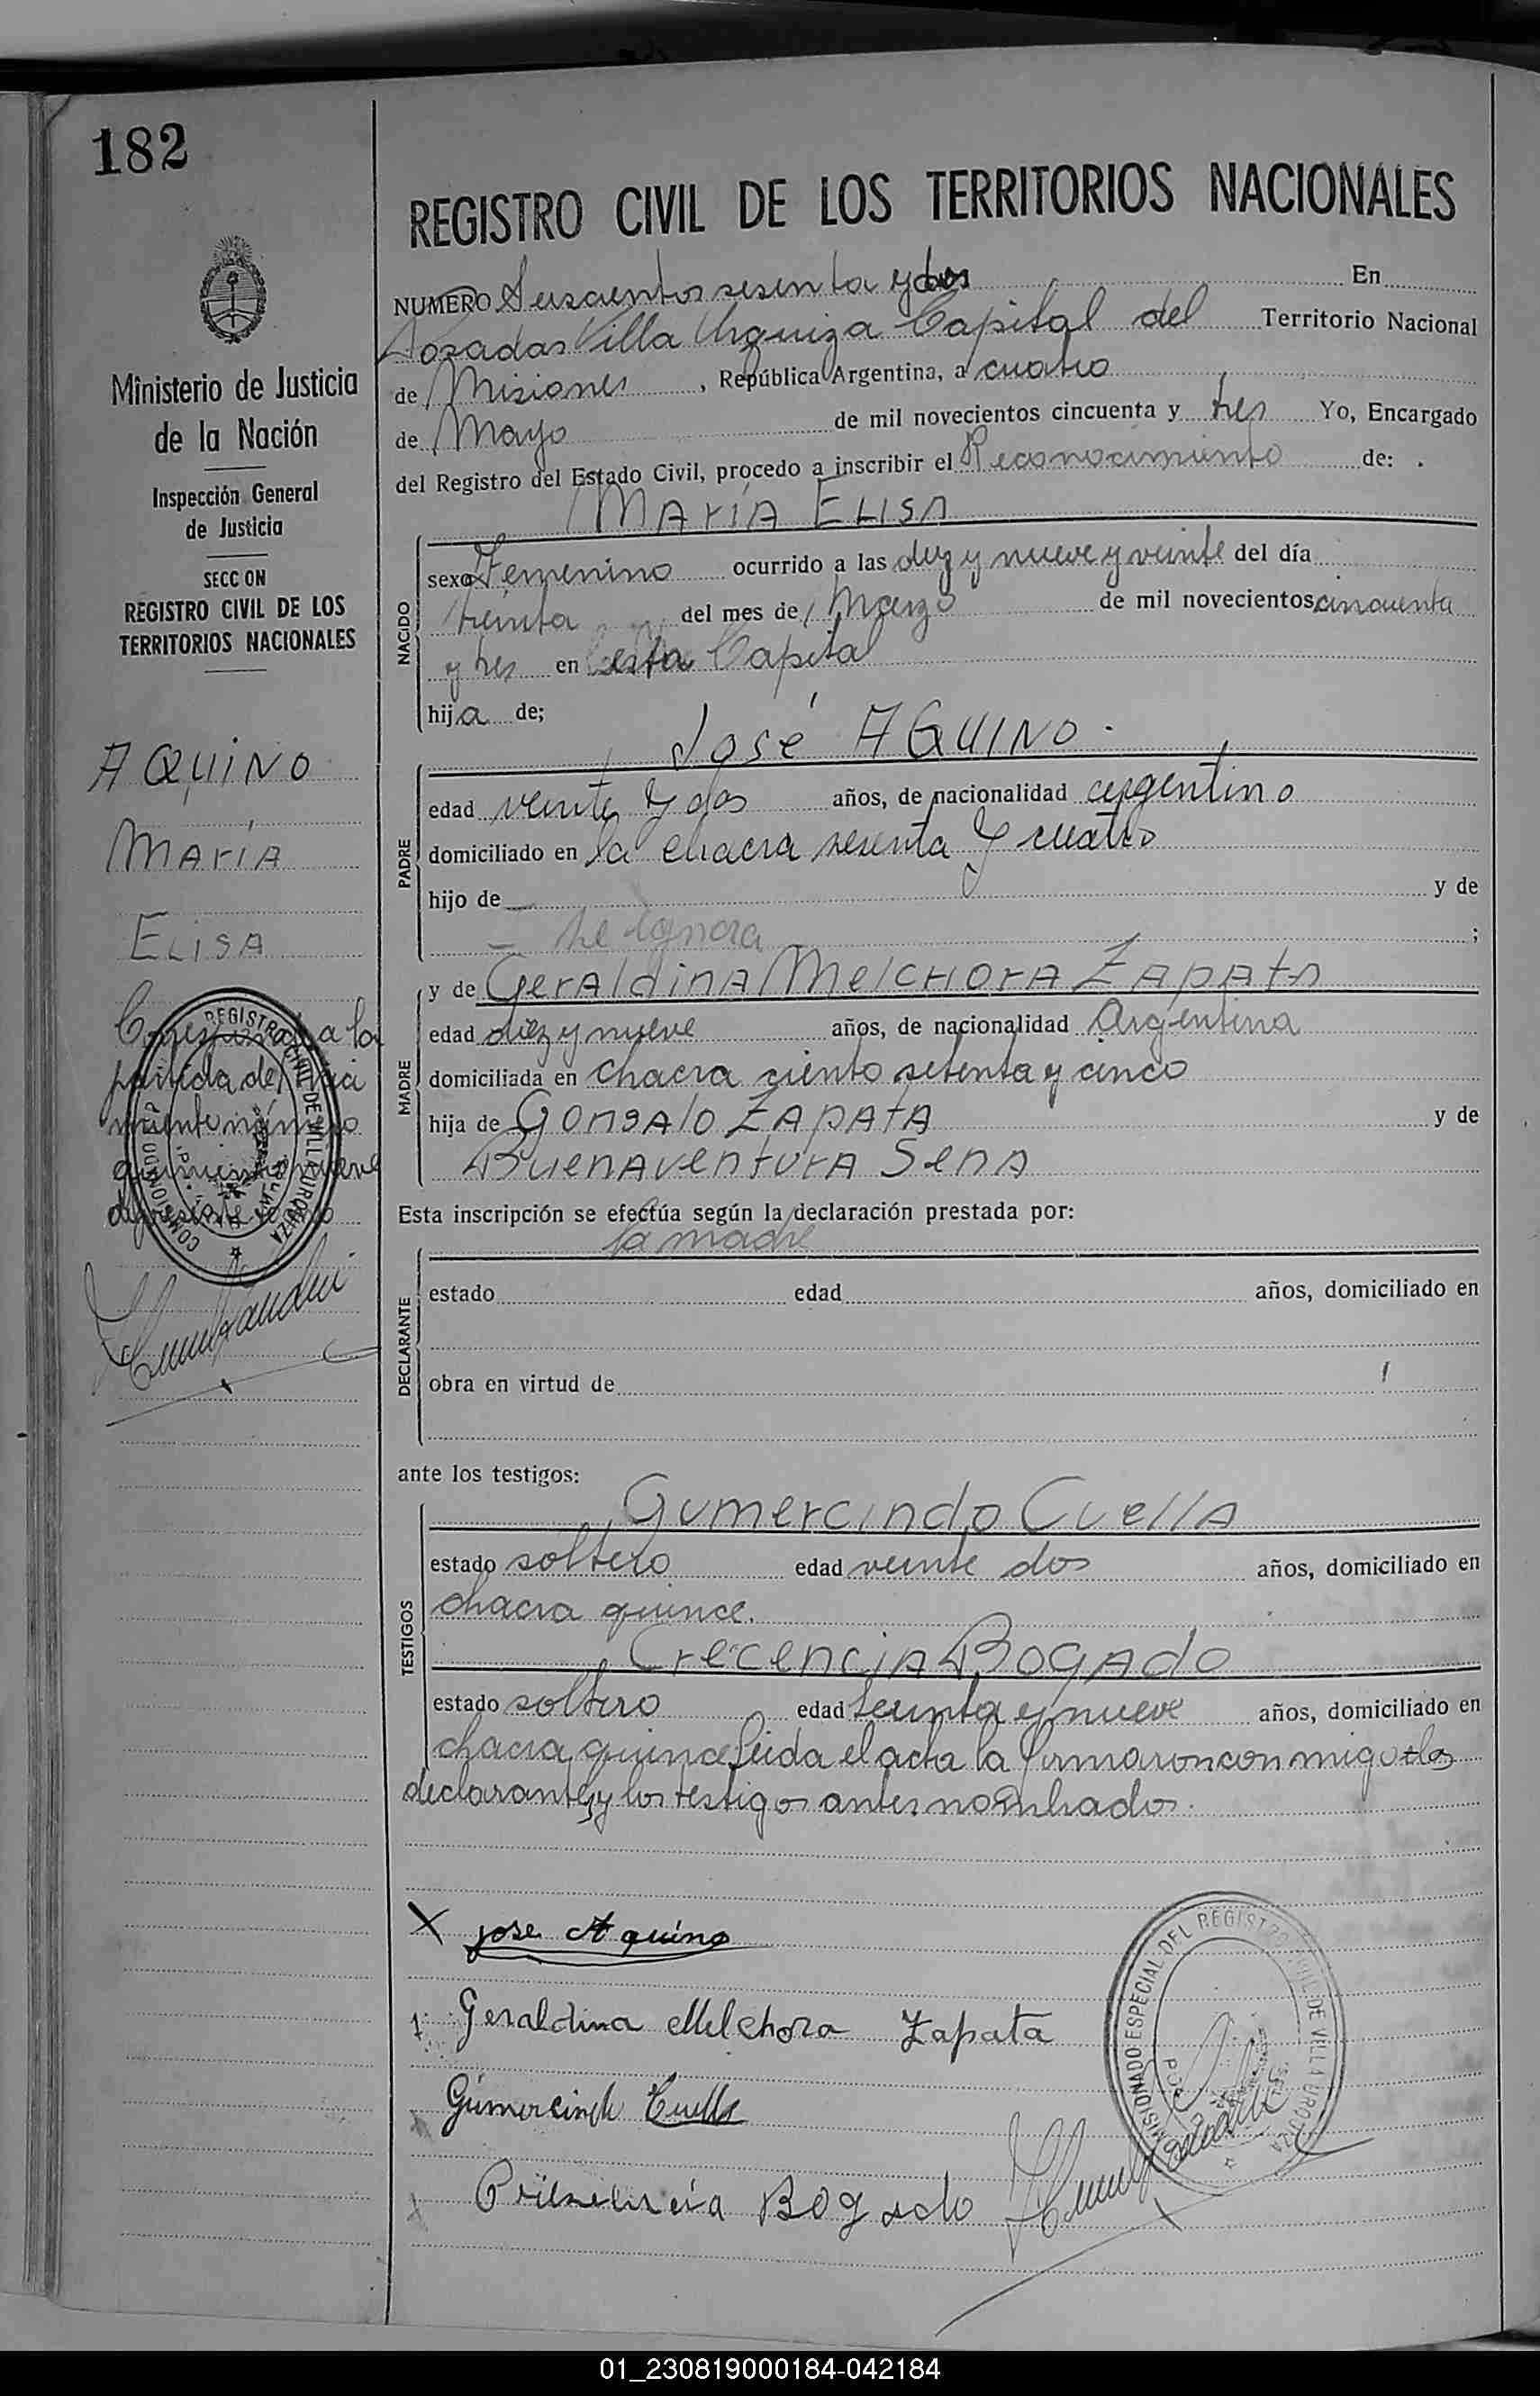 182
REGISTRO CIVIL DE LOS TERRITORIOS NACIONALES
NUMERO Seiscientos sesenta y dos En
Posadas Villa Urquiza Capital del Territorio Nacional
de Misiones , República Argentina, a cuatro
de Mayo de mil novecientos cincuenta y tres Yo, Encargado
del Registro del Estado Civil, procedo a inscribir el Reconocimiento de:
MARÍA ELISA
Ministerio de Justicia
de la Nación
Inspección General
de Justicia
SECC ON
REGISTRO CIVIL DE LOS
TERRITORIOS NACIONALES
AQUINO
MARÍA
ELISA
a la
partida de
número
NACIDO
sexo Femenino ocurrido a las diez y nueve y veinte del día
treinta del mes de Marzo de mil novecientos cincuenta
y tres en esta Capital
hija de;
José AQUINO.
PADRE
edad veinte y dos años, de nacionalidad argentino
domiciliado en la chacra sesenta y cuatro
hijo de — y de
— Se ignora — ;
y de GerAldinA MelCHOrA ZApAtA
MADRE
edad diez y nueve años, de nacionalidad Argentina
domiciliada en chacra ciento setenta y cinco
hija de GOnsAlO ZApAtA y de
BuenAventurA SenA
Esta inscripción se efectúa según la declaración prestada por:
la madre
DECLARANTE
estado edad años, domiciliado en
obra en virtud de
ante los testigos:
GumercIndo CuellA
TESTIGOS
estado soltero edad veinte dos años, domiciliado en
chacra quince.
CrecenciA BOgAdo
estado soltero edad treinta y nueve años, domiciliado en
chacra quince Leida el acta la firmaron con migo los
declarantes y los testigos antes nombrados.
X jose Aquino
Geraldina Melchora Zapata
Cuella
Bogado
COMISIONADO ESPECIAL DEL REGISTRO CIVIL DE VILLA URQUIZA
01_230819000184-042184